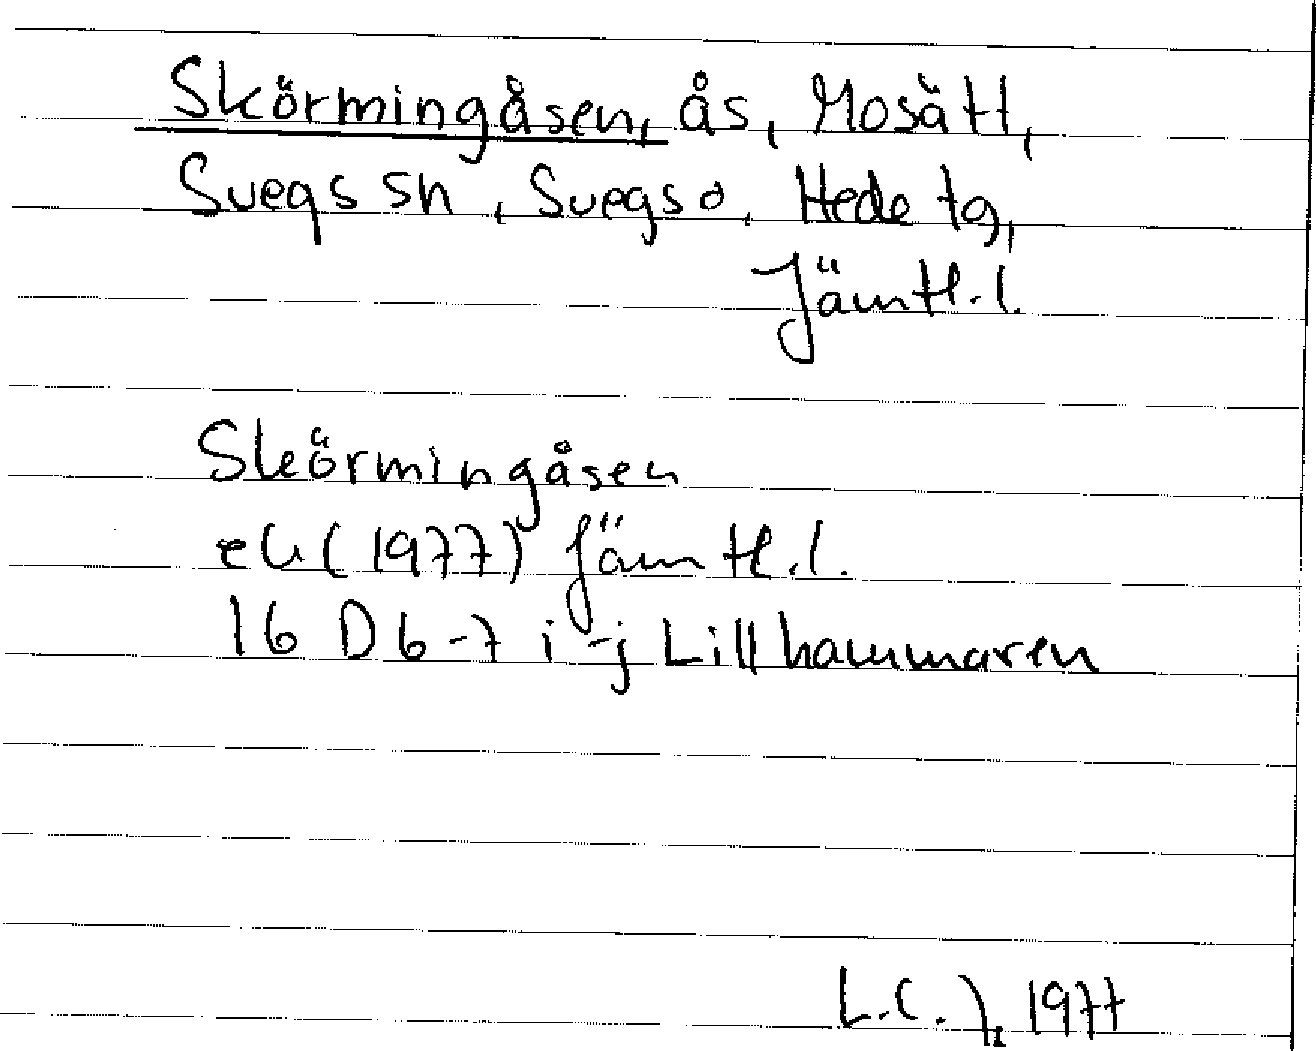 Skörmingåsen, ås, Mosätt,
Svegs sn, Svegs o, Hede tg,
Jämtl.l.
Skörmingåsen
ek (1977) Jämtl.l.
16 D 6-7 i-j Lillhammaren
L.C. 1977